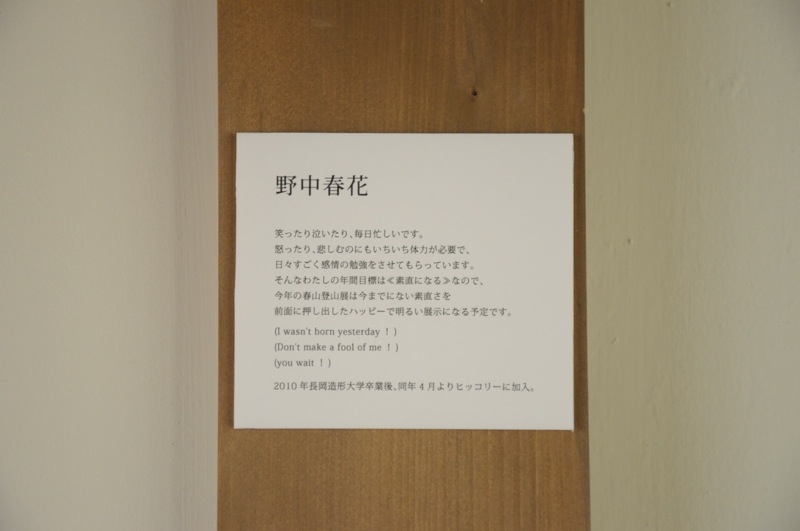 野中春花
笑ったり泣いたり、毎日忙しいです。
怒ったり、悲しむのにもいちいち体力が必要で、
日々すごく感情の勉強をさせてもらっています。
そんなわたしの年間目標は≪素直になる≫なので、
今年の春山登山展は今までにない素直さを
前面に押し出したハッピーで明るい展示になる予定です。
(I wasn't born yesterday ! )
(Don't make a fool of me ! )
(you wait ! )
2010 年長岡造形大学卒業後、同年 4 月よりヒッコリーに加入。